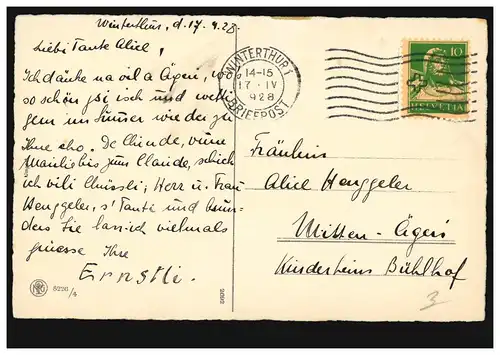 Winterthur, d. 17. 4. 28
Liebi Tante Alice,
Ich dänke na vil a Ägeri, wo
so schön gsi isch und wett
gern im Summer wieder zu
Ihne cho. De Chinde,
bis zum Claude, schick
ich vili Chüssli; Herr u. Frau
Henggeler, s' Tante und
Sie lass ich vielmals
grüesse Ihre
Ernstli.
WINTERTHUR 1
14-15
17. IV
1928
BRIEFPOST
10
HELVETIA
Fräulein
Alice Henggeler
Mitten-Ägeri
Kinderheim Bühlhof
3